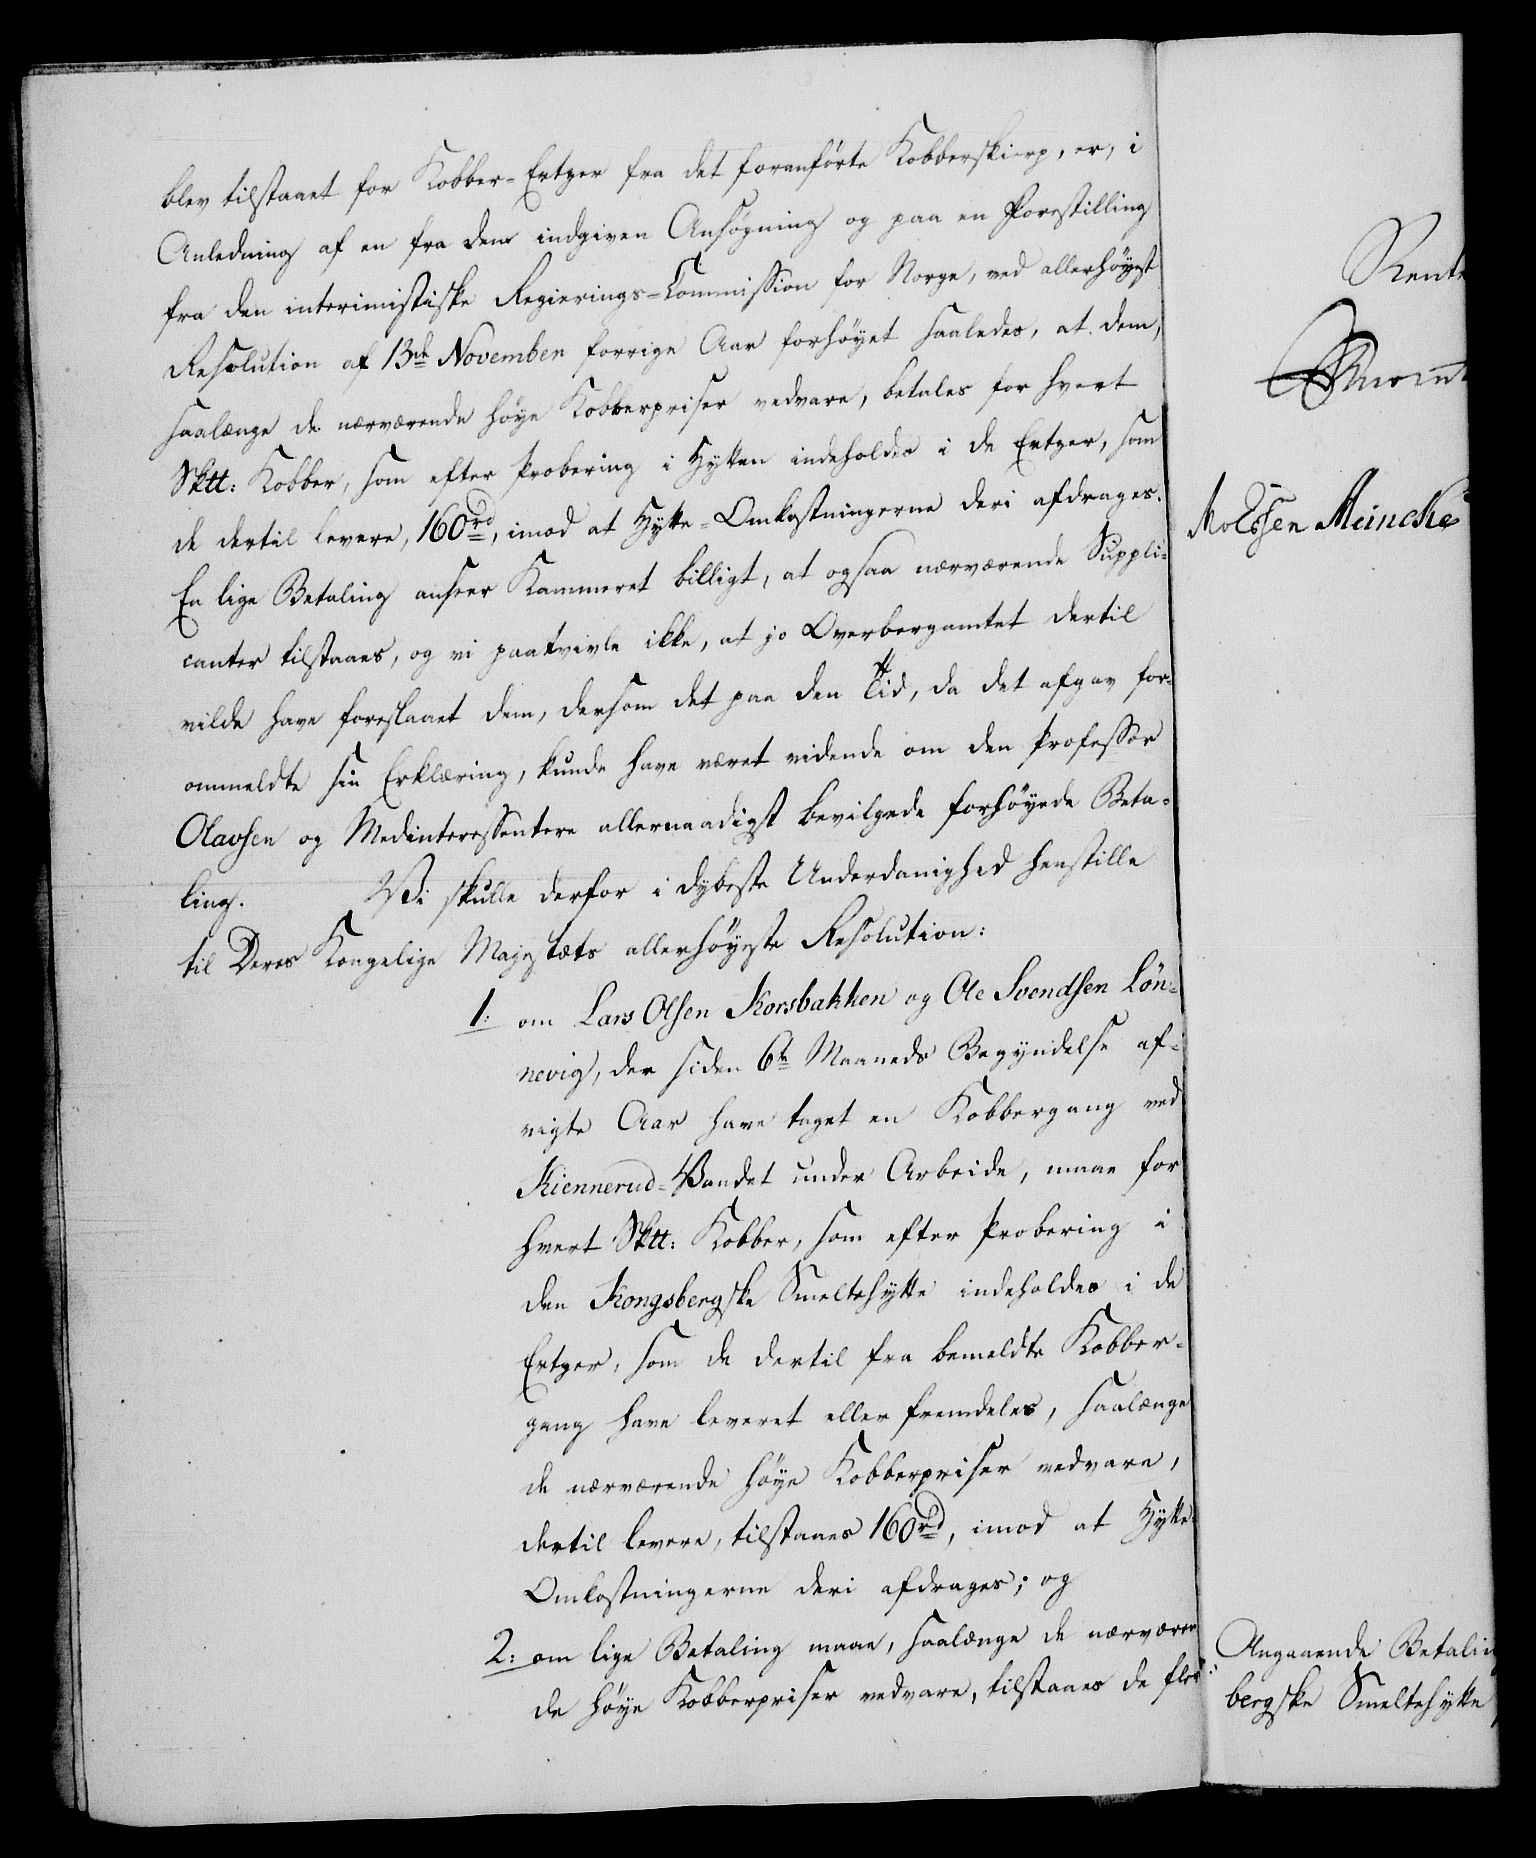 blev tilstaaet for Kobber-Ertzer fra det foranførte Kobberskierp, er, i
Anledning af en fra dem indgiven Ansøgning og paa en Forestilling
fra den interimistiske Regierings-Commission for Norge, ved allerhøyst
Resolution af 13de November forrige Aar forhøyet saaledes, at dem,
saalænge de nærværende høye Kobberpriser vedvare, betales for hvert
Sktt: Kobber, som efter Probering i Hytten indeholdes i de Ertzer, som
de dertil levere, 160rd, imod at Hytte-Omkostningerne deri afdrages.
En lige Betaling anseer Kammeret billigt, at ogsaa nærværende Suppli-
canter tilstaaes, og vi paatvivle ikke, at jo Overbergamtet dertil
vilde have foreslaaet dem, dersom det paa den Tid, da det afgav for-
ommeldte sin Erklæring, kunde have været vidende om den Professor
Olavsen og Medinteressentere allernaadigst bevilgede forhøyede Beta-
ling. Vi skulle derfor i dybeste Underdanighed henstille
til Deres Kongelige Majestæts allerhøyeste Resolution:
1: om Lars Olsen Korsbakken og Ole Svendsen Løn-
nevig, der siden 6te Maaneds Begyndelse af-
vigte Aar have taget en Kobbergang ved
Kiennerud-Vandet under Arbeide, maae for
hvert Sktt: Kobber, som efter Probering i
den Kongsbergske Smeltehytte indeholdes i de
Ertzer, som de dertil fra bemeldte Kobber-
gang have leveret eller fremdeles, saalænge
de nærværende høye Kobberpriser vedvare,
dertil levere, tilstaaes 160rd, imod at Hytte-
Omkostningerne deri afdrages; og
2: om lige Betaling maae, saalænge de nærværen-
de høye Kobberpriser vedvare, tilstaaes de fle-
Rente
Meincke
Angaaende Betalin
bergske Smeltehytte